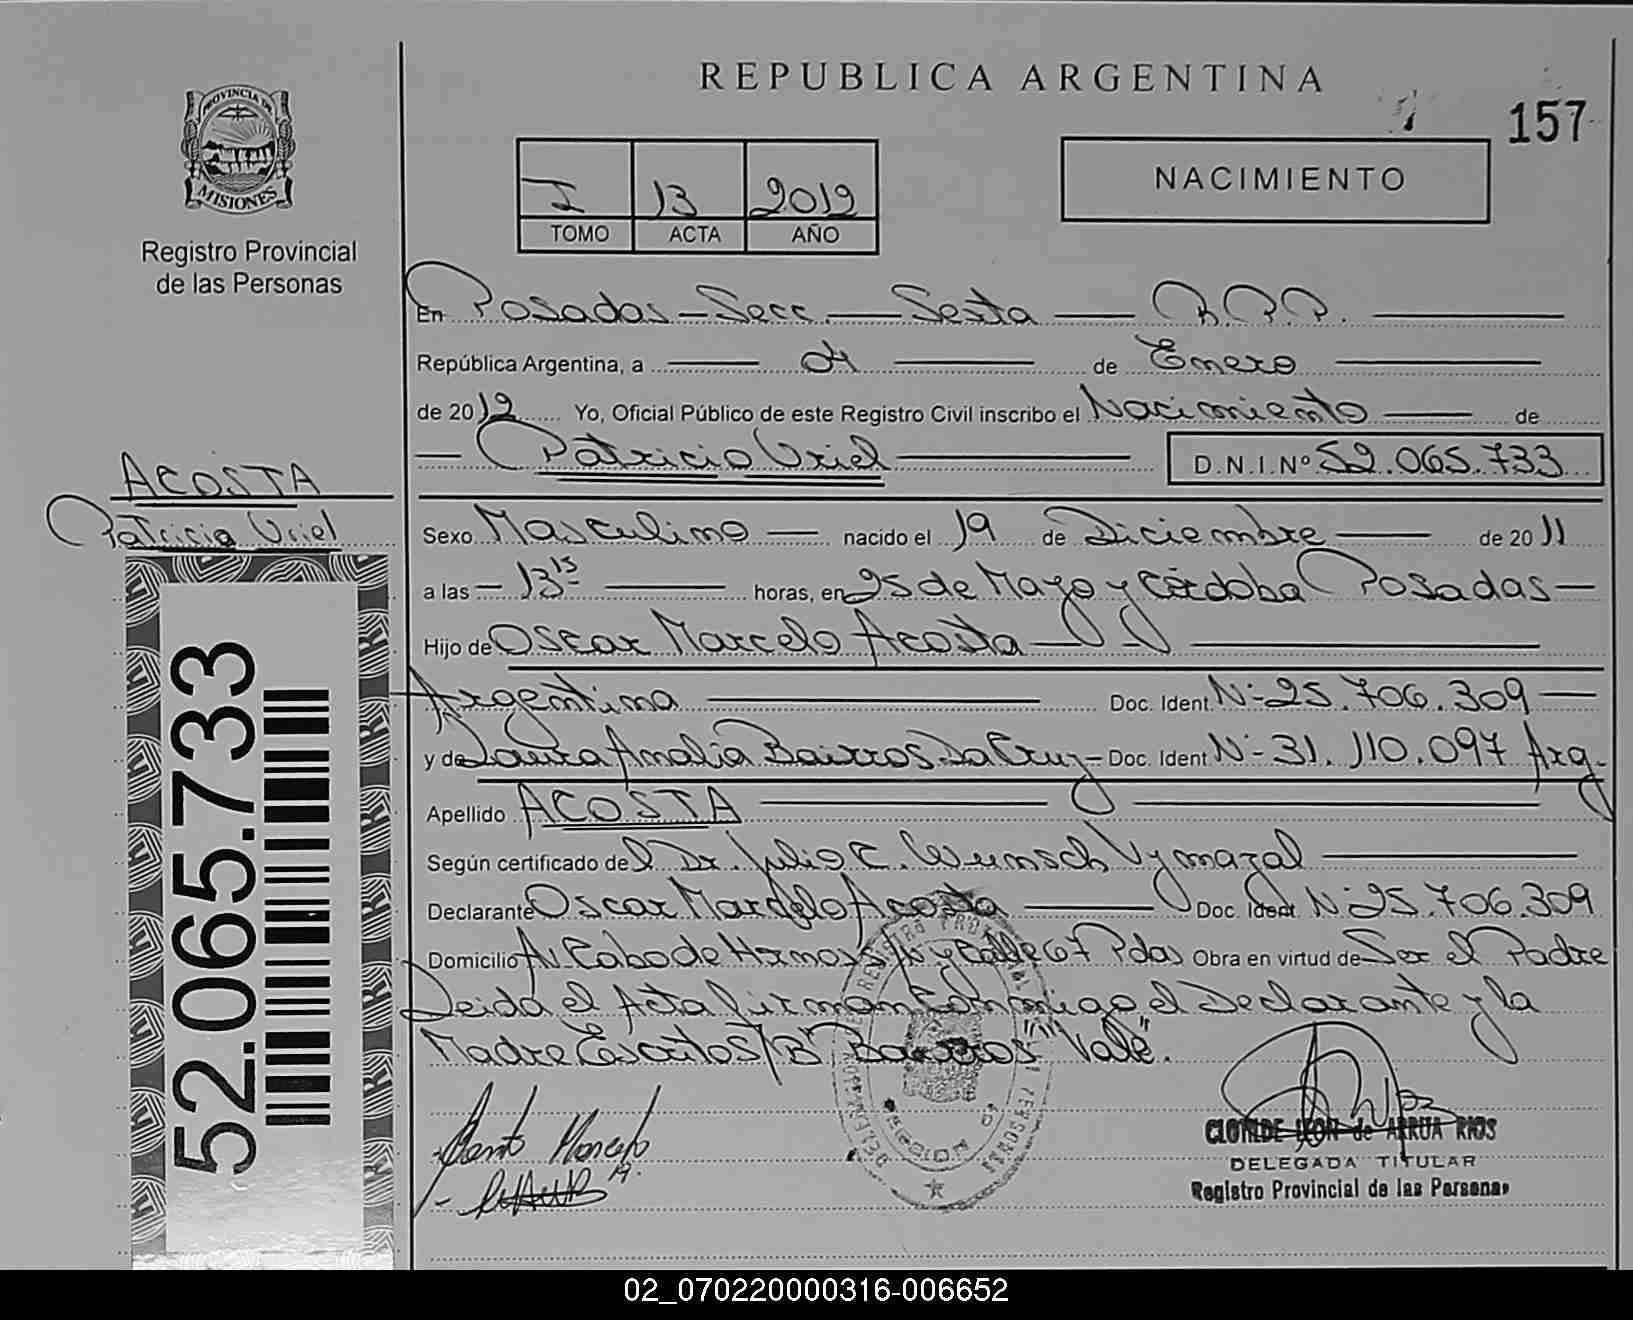 REPUBLICA ARGENTINA
157
PROVINCIA DE
MISIONES
Registro Provincial
de las Personas
I 13 2012
TOMO ACTA AÑO
NACIMIENTO
En Posadas - Secc. - Sexta - R.P.P.
República Argentina, a 04 de Enero
de 2012 Yo, Oficial Público de este Registro Civil inscribo el Nacimiento de
Patricio Uriel D.N.I.Nº 52.065.733
ACOSTA
Patricio Uriel
Sexo Masculino nacido el 19 de Diciembre de 2011
a las 13 15 horas, en 25 de Mayo y Córdoba Posadas
Hijo de Oscar Marcelo Acosta
Argentina Doc. Ident. Nº 25.706.309
y de Laura Amalia Bairros Da Cruz - Doc. Ident. Nº 31.110.097 Arg.
Apellido ACOSTA
Según certificado del Dr. Julio C. Wunsch Vymazal
Declarante Oscar Marcelo Acosta Doc. Ident. Nº 25.706.309
Domicilio Av. Cabo de Hornos S/N y Calle 67 Pdas Obra en virtud de Ser el Padre
Leida el Acta firman Conmigo el Declarante y la
Madre Escritos/B" Bairros" Vale".
52.065.733
CLOTILDE LEON de ARRUA RIOS
DELEGADA TITULAR
Registro Provincial de las Personas
02_070220000316-006652